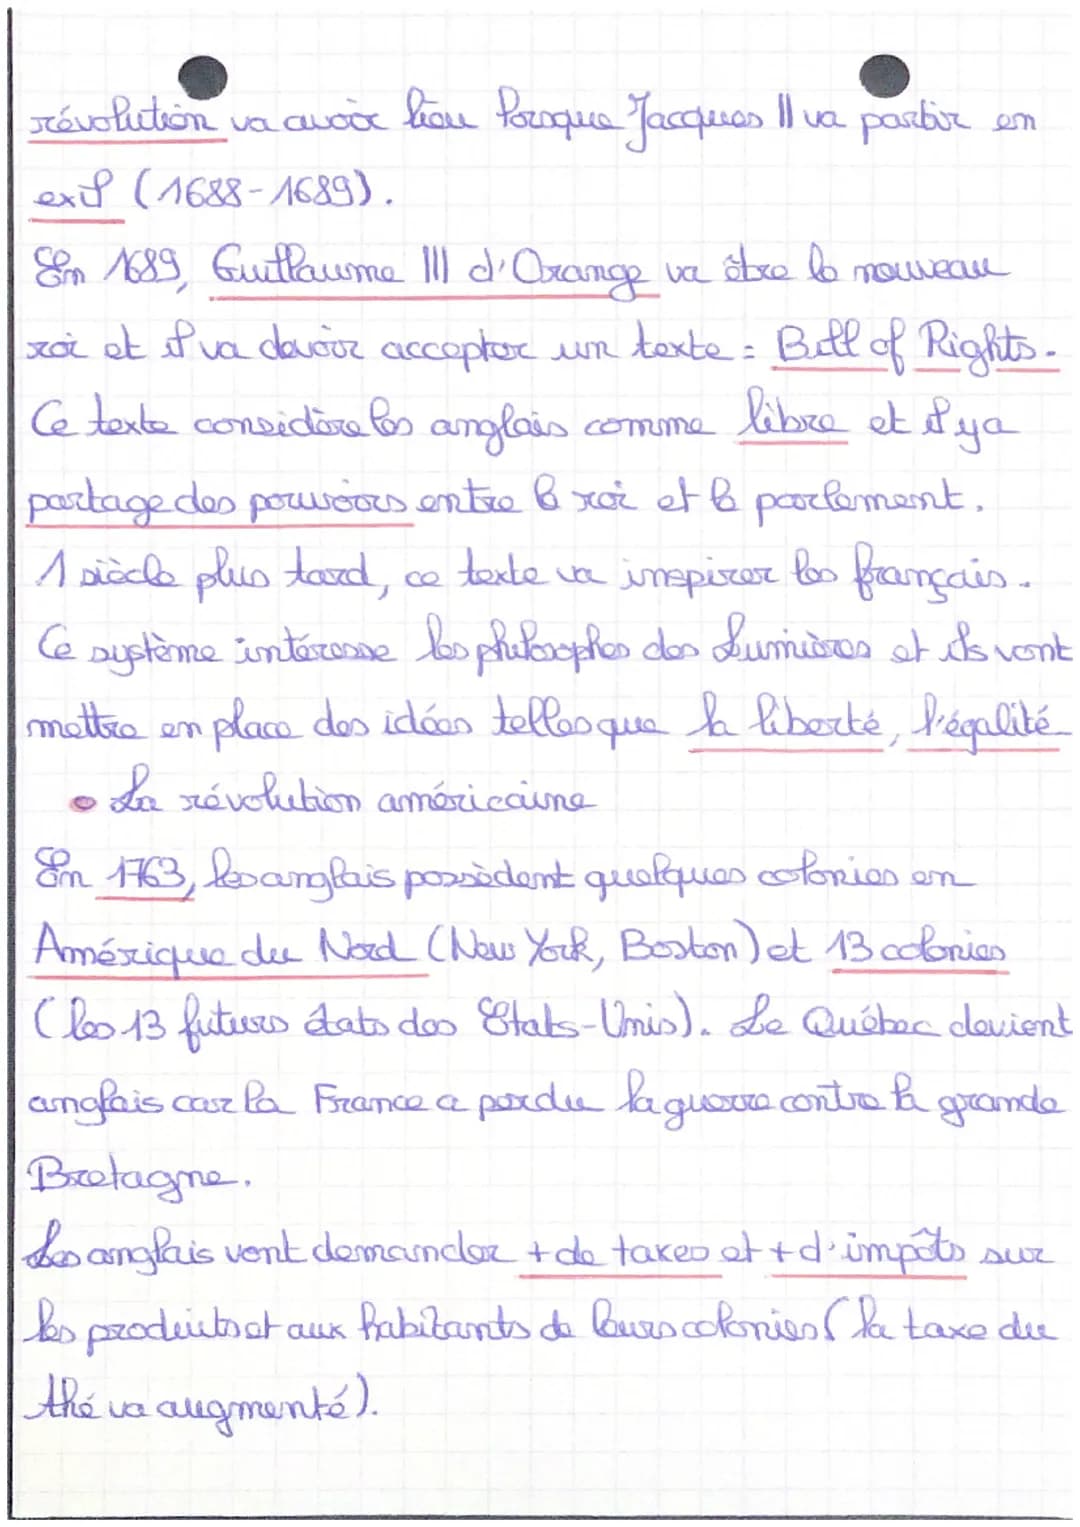 révolution va avoir lieu lorsque Jacques II va partir en
exil (1688-1689).
En 1689, Guillaume III d'Orange va être le nouveau
roi et il va devoir accepter un texte = Bill of Rights.
Ce texte considère les anglais comme libre et il y a
partage des pouvoirs entre le roi et le parlement.
1 siècle plus tard, ce texte va inspirer les français.
Ce système intéresse les philosophes des Lumières et ils vont
mettre en place des idées telles que la liberté, l'égalité
• La révolution américaine
En 1763, les anglais possèdent quelques colonies en
Amérique du Nord (New York, Boston) et 13 colonies
(les 13 futurs états des Etats-Unis). Le Québec devient
anglais car la France a perdu la guerre contre la grande
Bretagne.
Les anglais vont demander + de taxes et + d'impôts sur
les produits et aux habitants de leurs colonies (la taxe du
thé va augmenté).